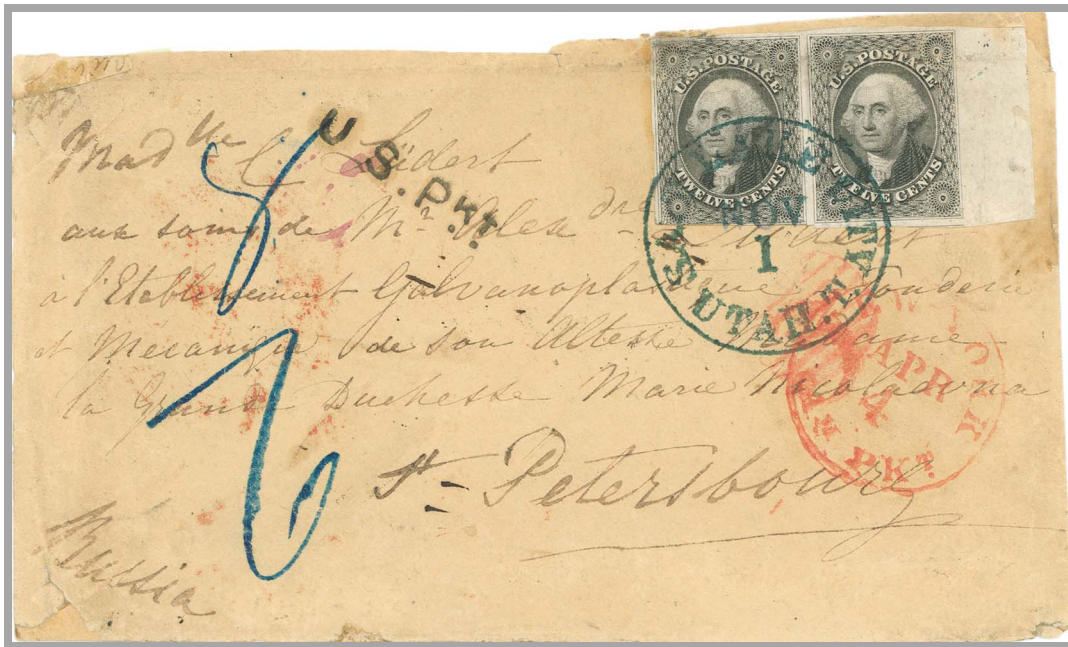 U.S. POSTAGE
TWELVE CENTS
U.S. POSTAGE
TWELVE CENTS
U.S. Pkt.
NOV
1
UTAH. T.
Madlle C.
aux soins de Mr Alexdre
a l'Etablissement Galvanoplastique Fonderie
et Mecanique de Son Altesse Madame
la Grande Duchesse Marie Nicolaevna
St- Petersbourg
Russia
APR
PKT.